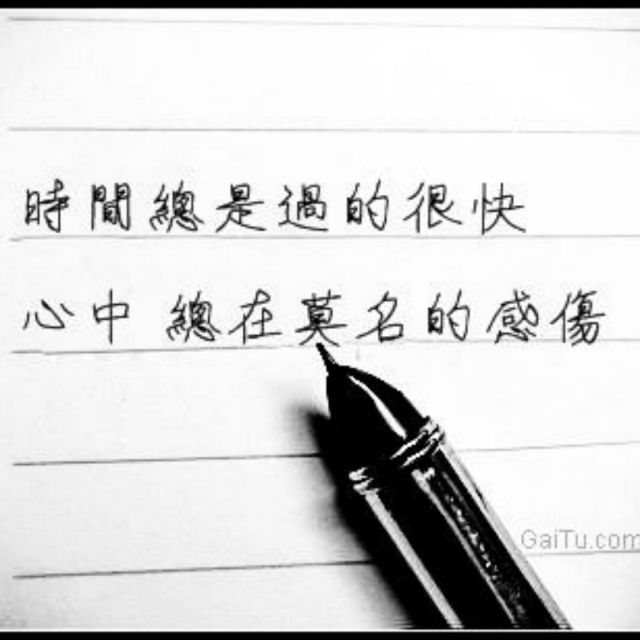 時間總是過的很快
心中總在莫名的感傷
GaiTu.com